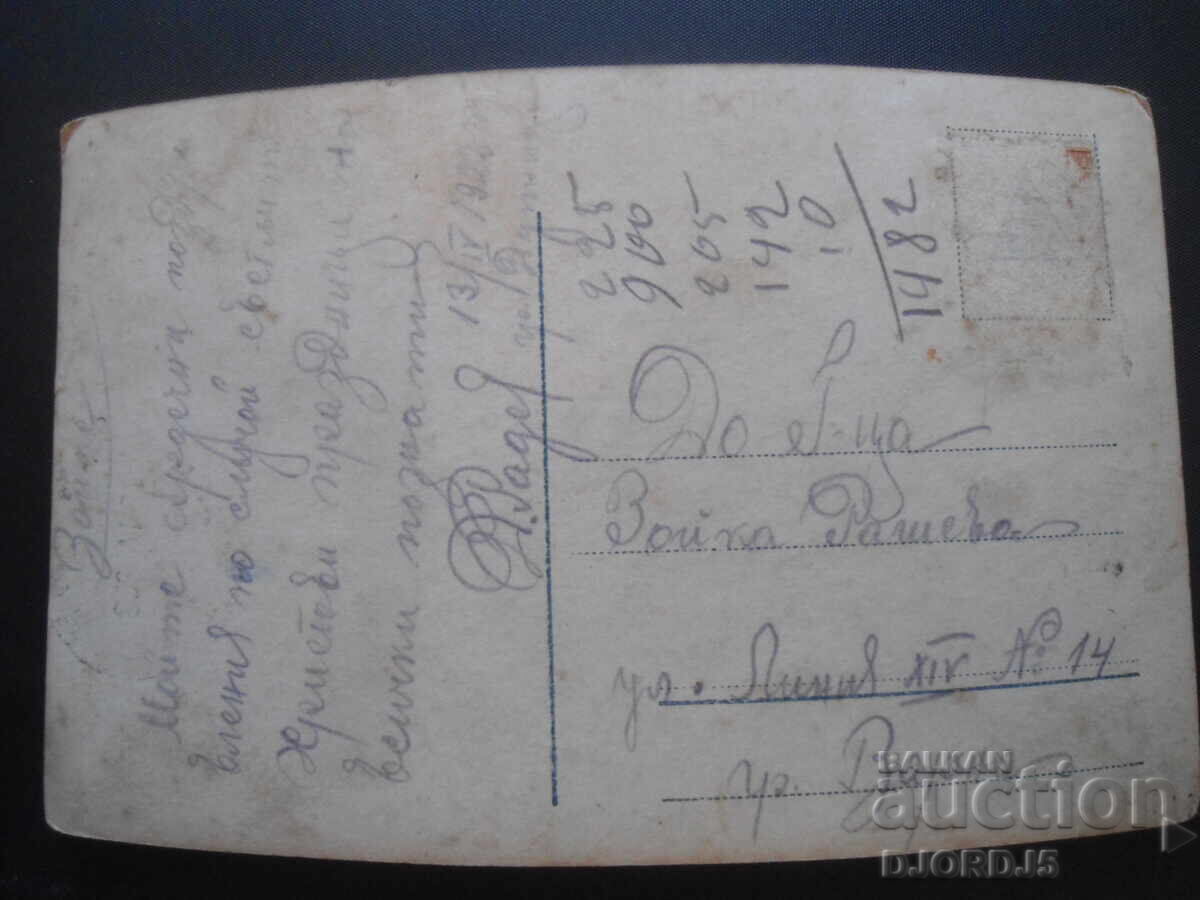 Моите сърдечни поздра
вления по случай светлите
Христови праздници на
всички познати
13/IV
Р. Радев
225
900
205
142
10
1482
До г-ца
Зойка Рашева
ул. Линия XIV № 14
гр.
BALKAN
auction
DJORDJ5